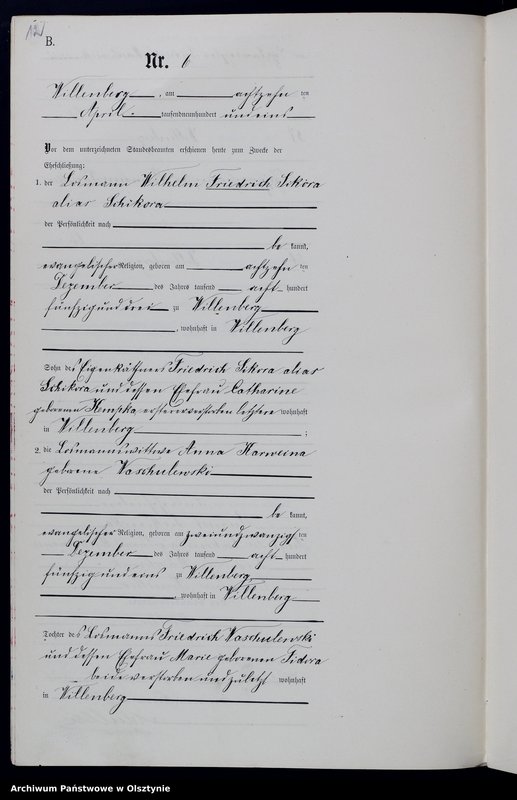 B.
Nr. 6
Willenberg, am achtzehn ten
April tausendneunhundert und eins
Vor dem unterzeichneten Standesbeamten erschienen heute zum Zwecke der
Eheschließung:
1. der Losmann Wilhelm Friedrich Sikora
alias Schikora
der Persönlichkeit nach
be kannt,
evangelischer Religion, geboren am achtzehn ten
Dezember des Jahres tausend acht hundert
fünfzig und drei zu Willenberg
, wohnhaft in Willenberg
Sohn des Eigenkäthners Friedrich Sikora alias
Schikora und dessen Ehefrau Catharine
geborenen Kempka, ersterer verstorben letztere wohnhaft
in Willenberg ;
2. die Losmannswittwe Anna Karweina
geborene Waschulewski
der Persönlichkeit nach
be kannt,
evangelischer Religion, geboren am zweiundzwanzigs ten
Dezember des Jahres tausend acht hundert
fünfzig und eins zu Willenberg,
, wohnhaft in Willenberg
Tochter des Losmanns Friedrich Waschulewski
und dessen Ehefrau Marie geborenen Fidora
beide verstorben und zuletzt wohnhaft
in Willenberg
Archiwum Państwowe w Olsztynie